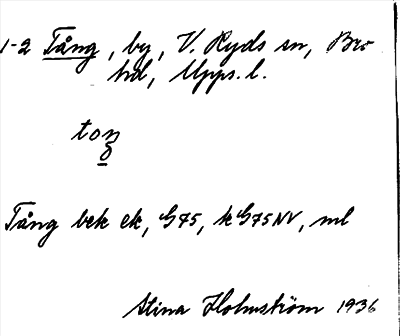 1-2 Tång, by, V. Ryds sn, Bro
hd, Upps. l.
toŋ
Tång bek ek, G75, kG75NV, ml
Stina Holmström 1936